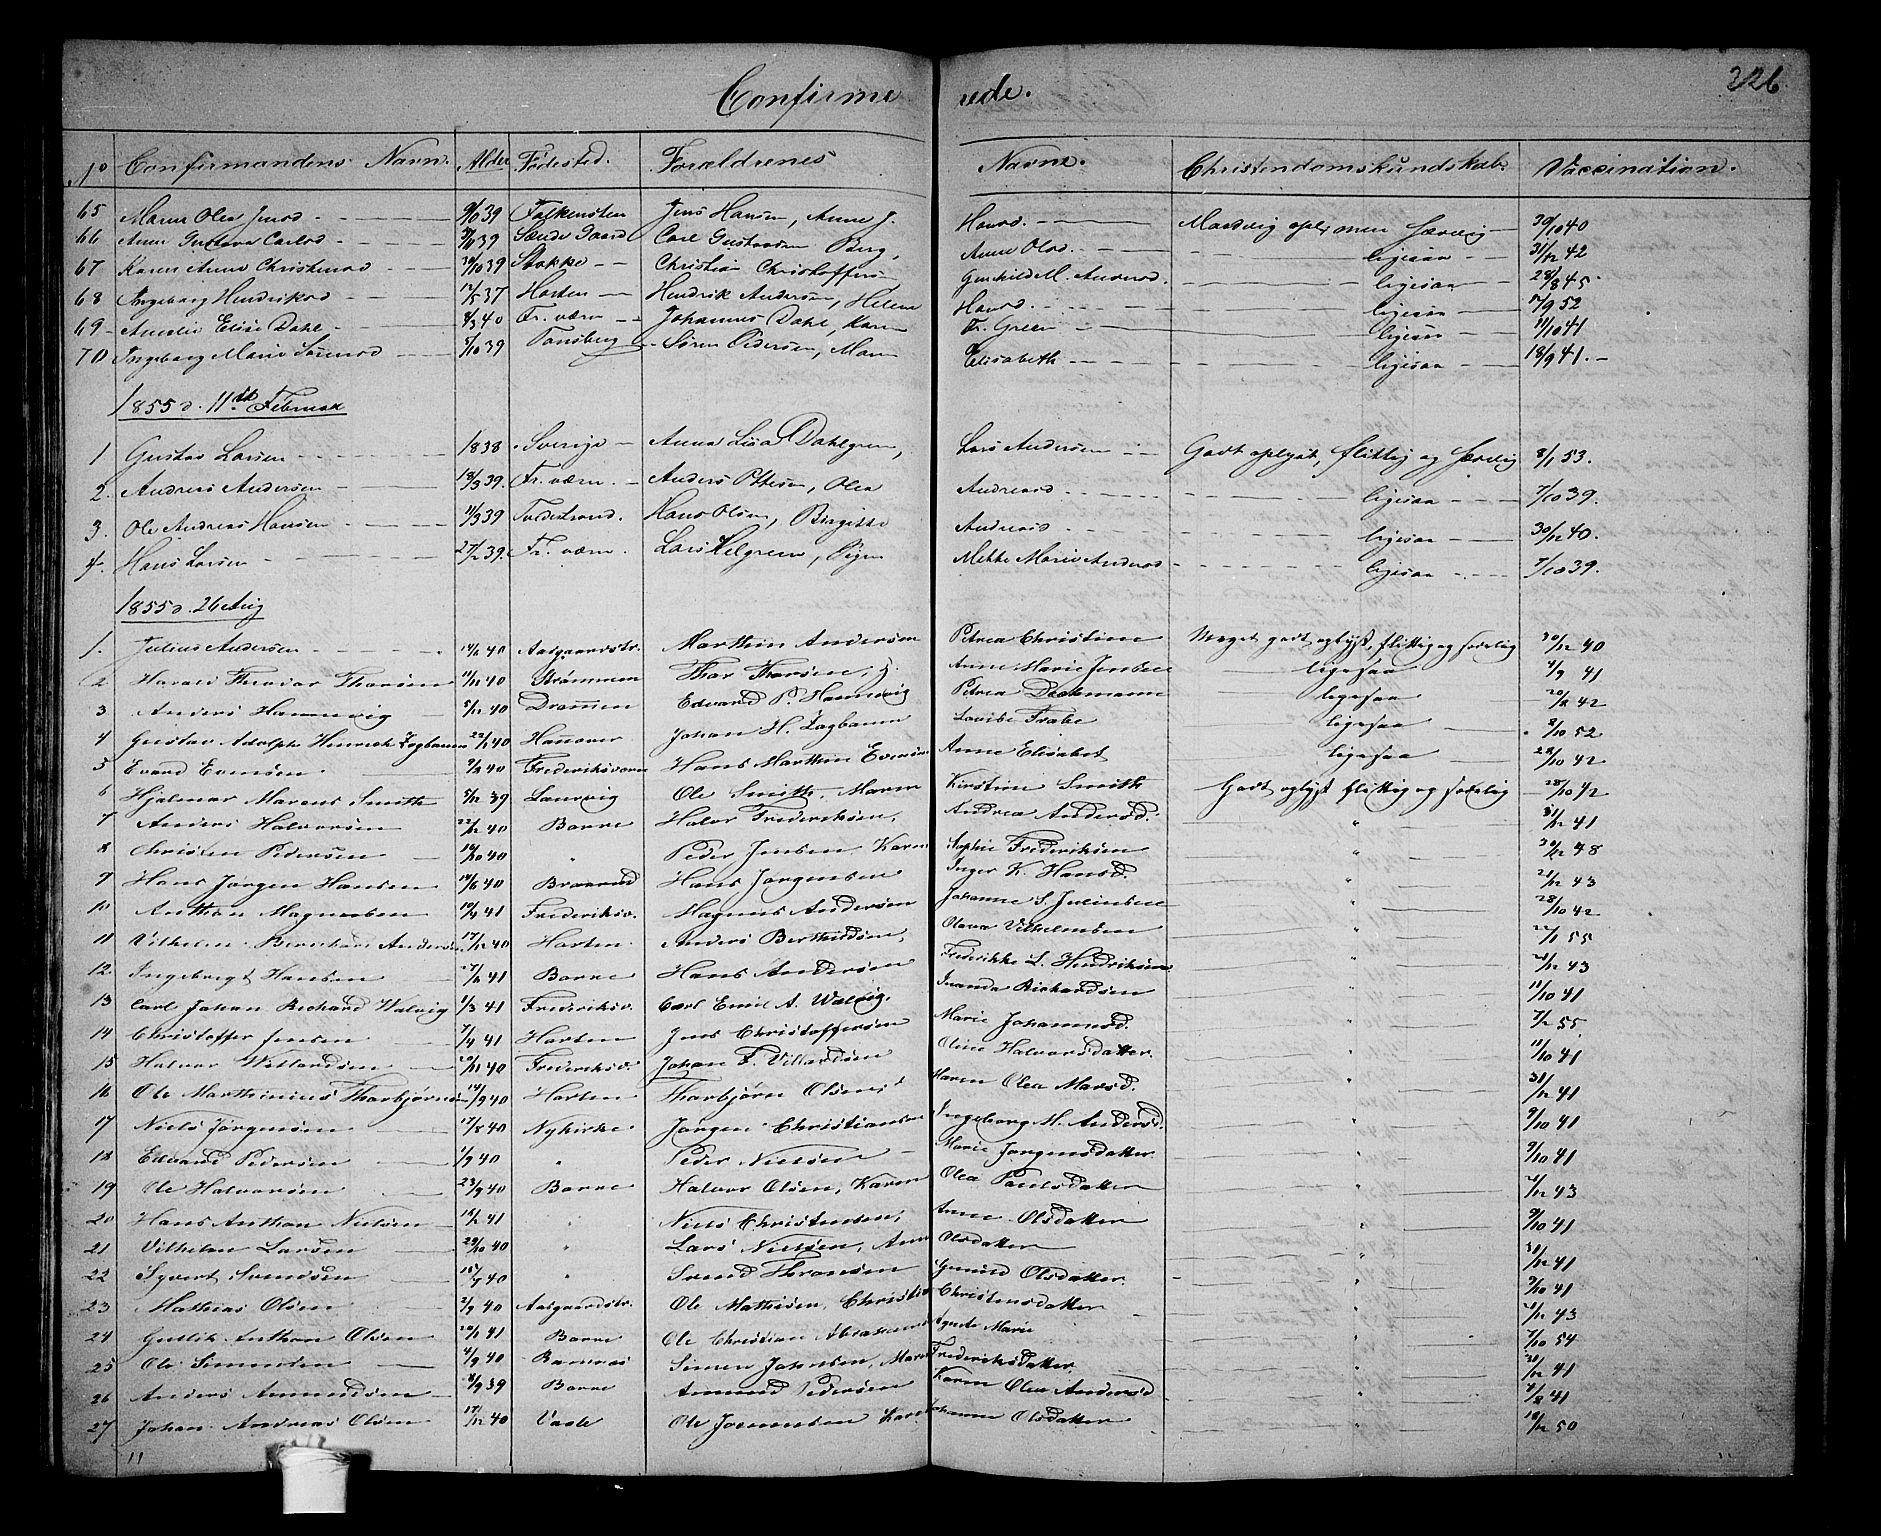 Confirmerede. 326
No Confirmandens Navn. Alder Fødested. Forældrenes Navne. Christendomskundskab. Vaccination.
65 Maren Olea Jensd 9/10 39 Falkensten Jens Hansen, Anne J. Hansd. 30/10 40
66 Anne Gustava Carlsd Carl Gustavsen Berg, Anne Olsd. ligesaa 31/12 42
67 Karen Anne Christensd 30/10 39 Stokke Christian Christoffers Gunhild M. Andersd. ligesaa 28/8 45.
68 Ingeborg Hendriksd 12/5 37 Horten Hendrik Andersen, Helene Hansd. ligesaa 5/9 52
69 Amalie Elise Dahl 8/3 40 Fr. værn Johannes Dahl, Karen Fr. Green ligesaa 11/10 41
70 Ingeborg Marie Sørensd 5/10 39 Tønsberg Søren Pedersen, Maren Elisabeth ligesaa 18/9 41.
1855 d. 11te Februar
1 Gustav Larsen 1838 Sverige Anna Lisa Dahlgren, Lars Andersen Godt oplyst, flittig og sædelig 8/1 53.
2. Andreas Andersen 18/3 39. Fr. værn. Anders Ottesen, Olea Andreasd ligesaa 7/10 39.
3. Ole Andreas Hansen 11/9 39 Tvedestrand. Hans Olsen, Birgitte Andreasd. ligesaa 30/12 40.
4. Hans Larsen 27/2 39. Fr. værn. Lars Helgren, Pigen Mekke Marie Andersd ligesaa 7/10 39.
1855 d. 26 Aug
1. Julius Andersen 14/6 40 Aasgaardstr. Marthin Andersen Petrea Christine Meget godt oplyst, flittig og sædelig 30/12 40
2 Harald Theodor Thorsen 11/11 40 Strømmen Thor Thorsen, Anne Marie Jensen ligesaa 4/9 41
3 Anders Hannevig 5/12 40 Drammen Edvard P. Hannevig Petrea Dedkmann ligesaa 20/2 42
4 Gustav Adolph Hinrich Zagbaum 22/1 40 Hanover Johan H. Zagbaum Lovise Frabe ligesaa 8/10 52
5 Evard Evensen 9/3 40 Frederiksværn Hans Marthin Evensen Anne Elisabet ligesaa 28/10 42
6 Hjalmar Marcus Smith 5/12 39 Laurvig Ole Smith, Maren Kirstine Smith Godt oplyst flittig og sædelig 28/10 42
7 Anders Halvorsen 22/12 40 Borre Halvor Frederiksen, Andrea Andersd. " 31/12 41
8 Christen Pedersen 16/10 40 " Peder Jensen Karen Sophie Frederiksen " 30/12 48
9 Hans Jørgen Hansen 14/6 40 Hans Jørgensen Inger K. Hansd. " 21/12 43
10 Anthon Magnussen 10/4 41 Frederiksv. Magnus Andersen Johanne S. Juliussen " 28/10 42
11 Vilhelm Bernhard Andersen 17/12 40 Horten. Anders Berthelsen, Olava Vilhelmsen " 22/1 55
12. Ingebregt Hansen 27/6 41 Borre Hans Andersen Frederikke L. Hendriksen " 21/12 43
13 Carl Johan Richard Walvig 1/3 41 Frederiksv. Carl Emil A. Walvig. Iranda Richardsen " 11/10 41
14 Christoffer Jensen 7/4 41 Horten Jens Christoffersen Marie Johannesd. " 7/2 55
15 Halvor Willardsen 20/11 40 Frederiksv. Johan F. Villardsen Oline Halvorsdatter. " 11/10 41
16 Ole Marthinius Thorbjørnsen 14/9 40 Horten Thorbjørn Olsen, Maren Olea Marsd. " 31/12 41
17 Niels Jørgensen 17/8 40 Nykirke Jørgen Christiansen Ingeborg M. Andersd. " 9/10 41
18 Edvard Pedersen 1/9 40 " Peder Nielsen Marie Jørgensdatter " 9/10 41
19 Ole Halvorsen 23/9 40 Borre Halvor Olsen, Karen Olea Paulsdatter " 21/12 43
20 Hans Anthon Nielsen 16/2 41 " Niels Christensen, Anne Olsdatter " 9/10 41
21 Vilhelm Larsen 29/10 40 " Lars Nielsen, Anne Olsdatter " 31/12 41
22 Syvert Svendsen 15/9 40 " Svend Thronsen Gunild Olsdatter. " 9/10 41
23 Mathias Olsen 2/9 40 Aasgaardstr. Ole Mathisen, Christine Christensdatter " 21/12 43
24 Gullik Anthon Olsen 20/1 41 Borre Ole Christian Abrahams Agnete Marie " 7/10 54
25 Ole Simensen 4/9 40 Simen Johnsen, Maren Frederiksdatter, " 31/12 41
26 Anders Amundsen 8/9 39 Borre Amund Pedersen Karen Olea Andersd " 4/2 41
27 Johan Andreas Olsen 17/12 40 Vaale Ole Jørnnssen Karen Johanne Olsdatter " 18/12 50